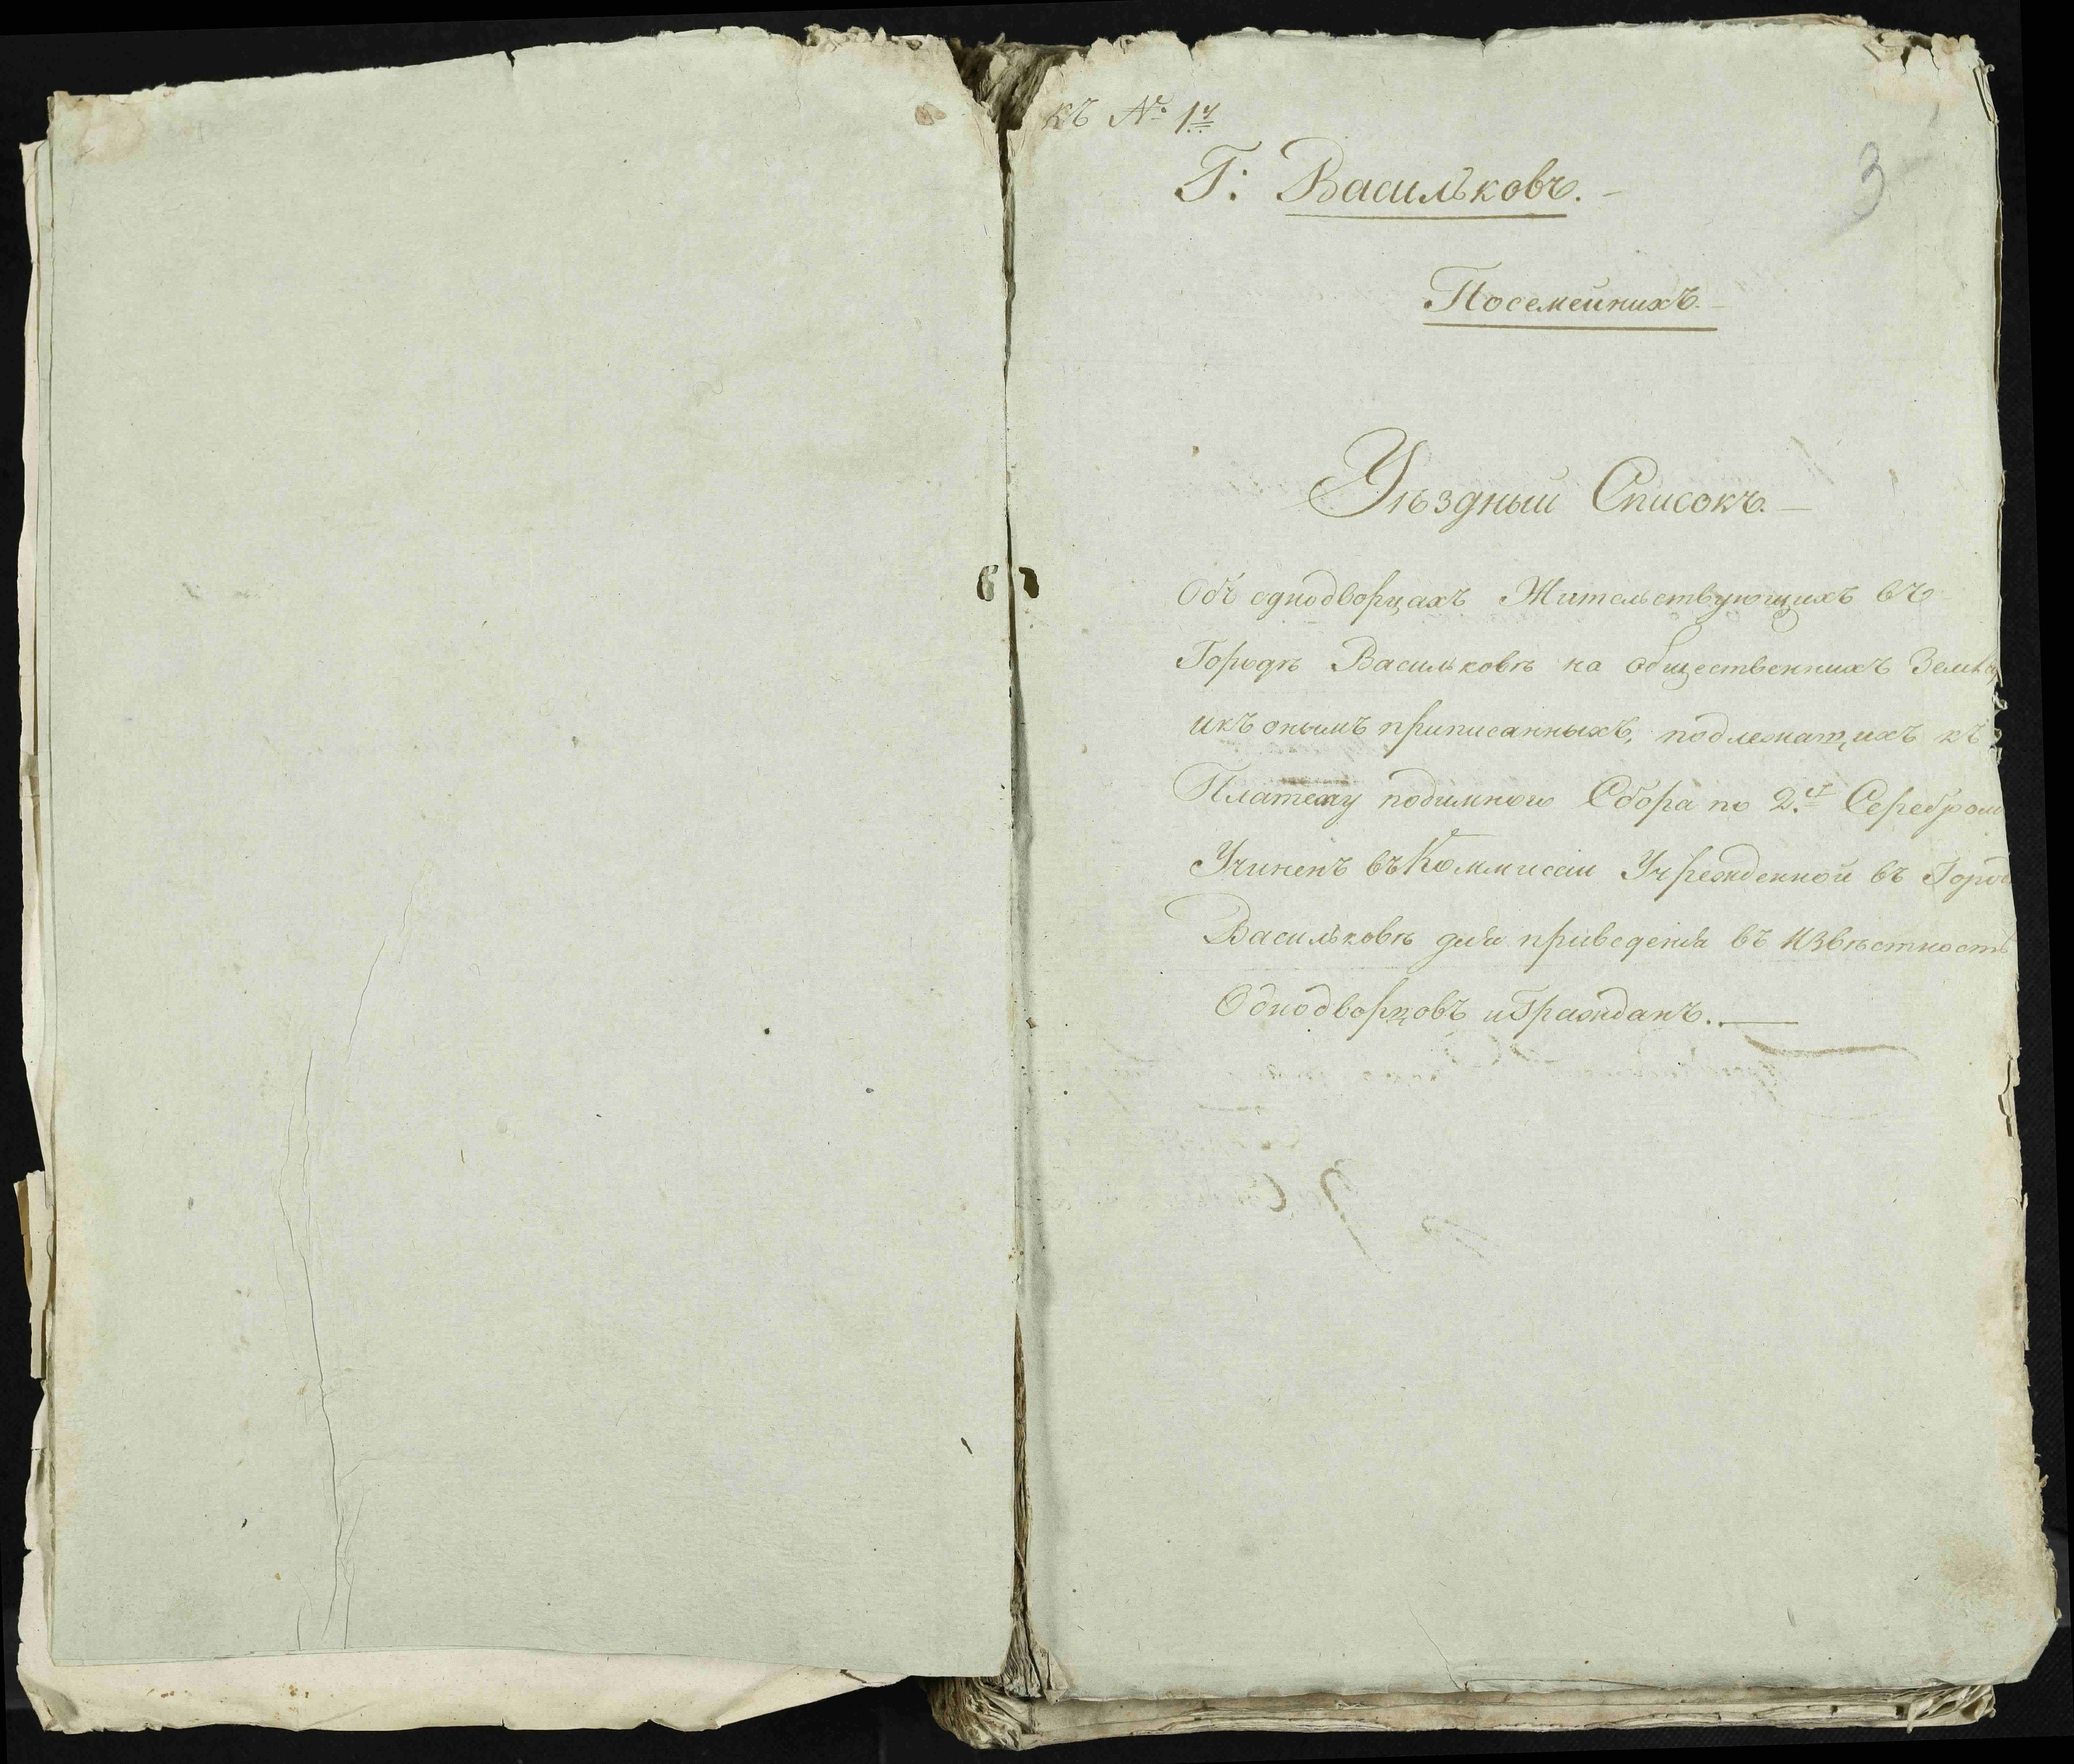 къ № 1й
3
Г: Васильковъ.
Посемейнихъ.
Уѣздный Списокъ.
Объ однодворцахъ Жительствующихъ въ
Городѣ Васильковѣ на общественнихъ
икъ онымъ приписанныхъ, подлежащихъ къ
Платежу подимного Сбора по 2. Серебромъ
Учиненъ въ Коммисіи Учрежденной въ Город
Васильковѣ для приведенія въ извѣстность
Однодворцовъ и Гражданъ.